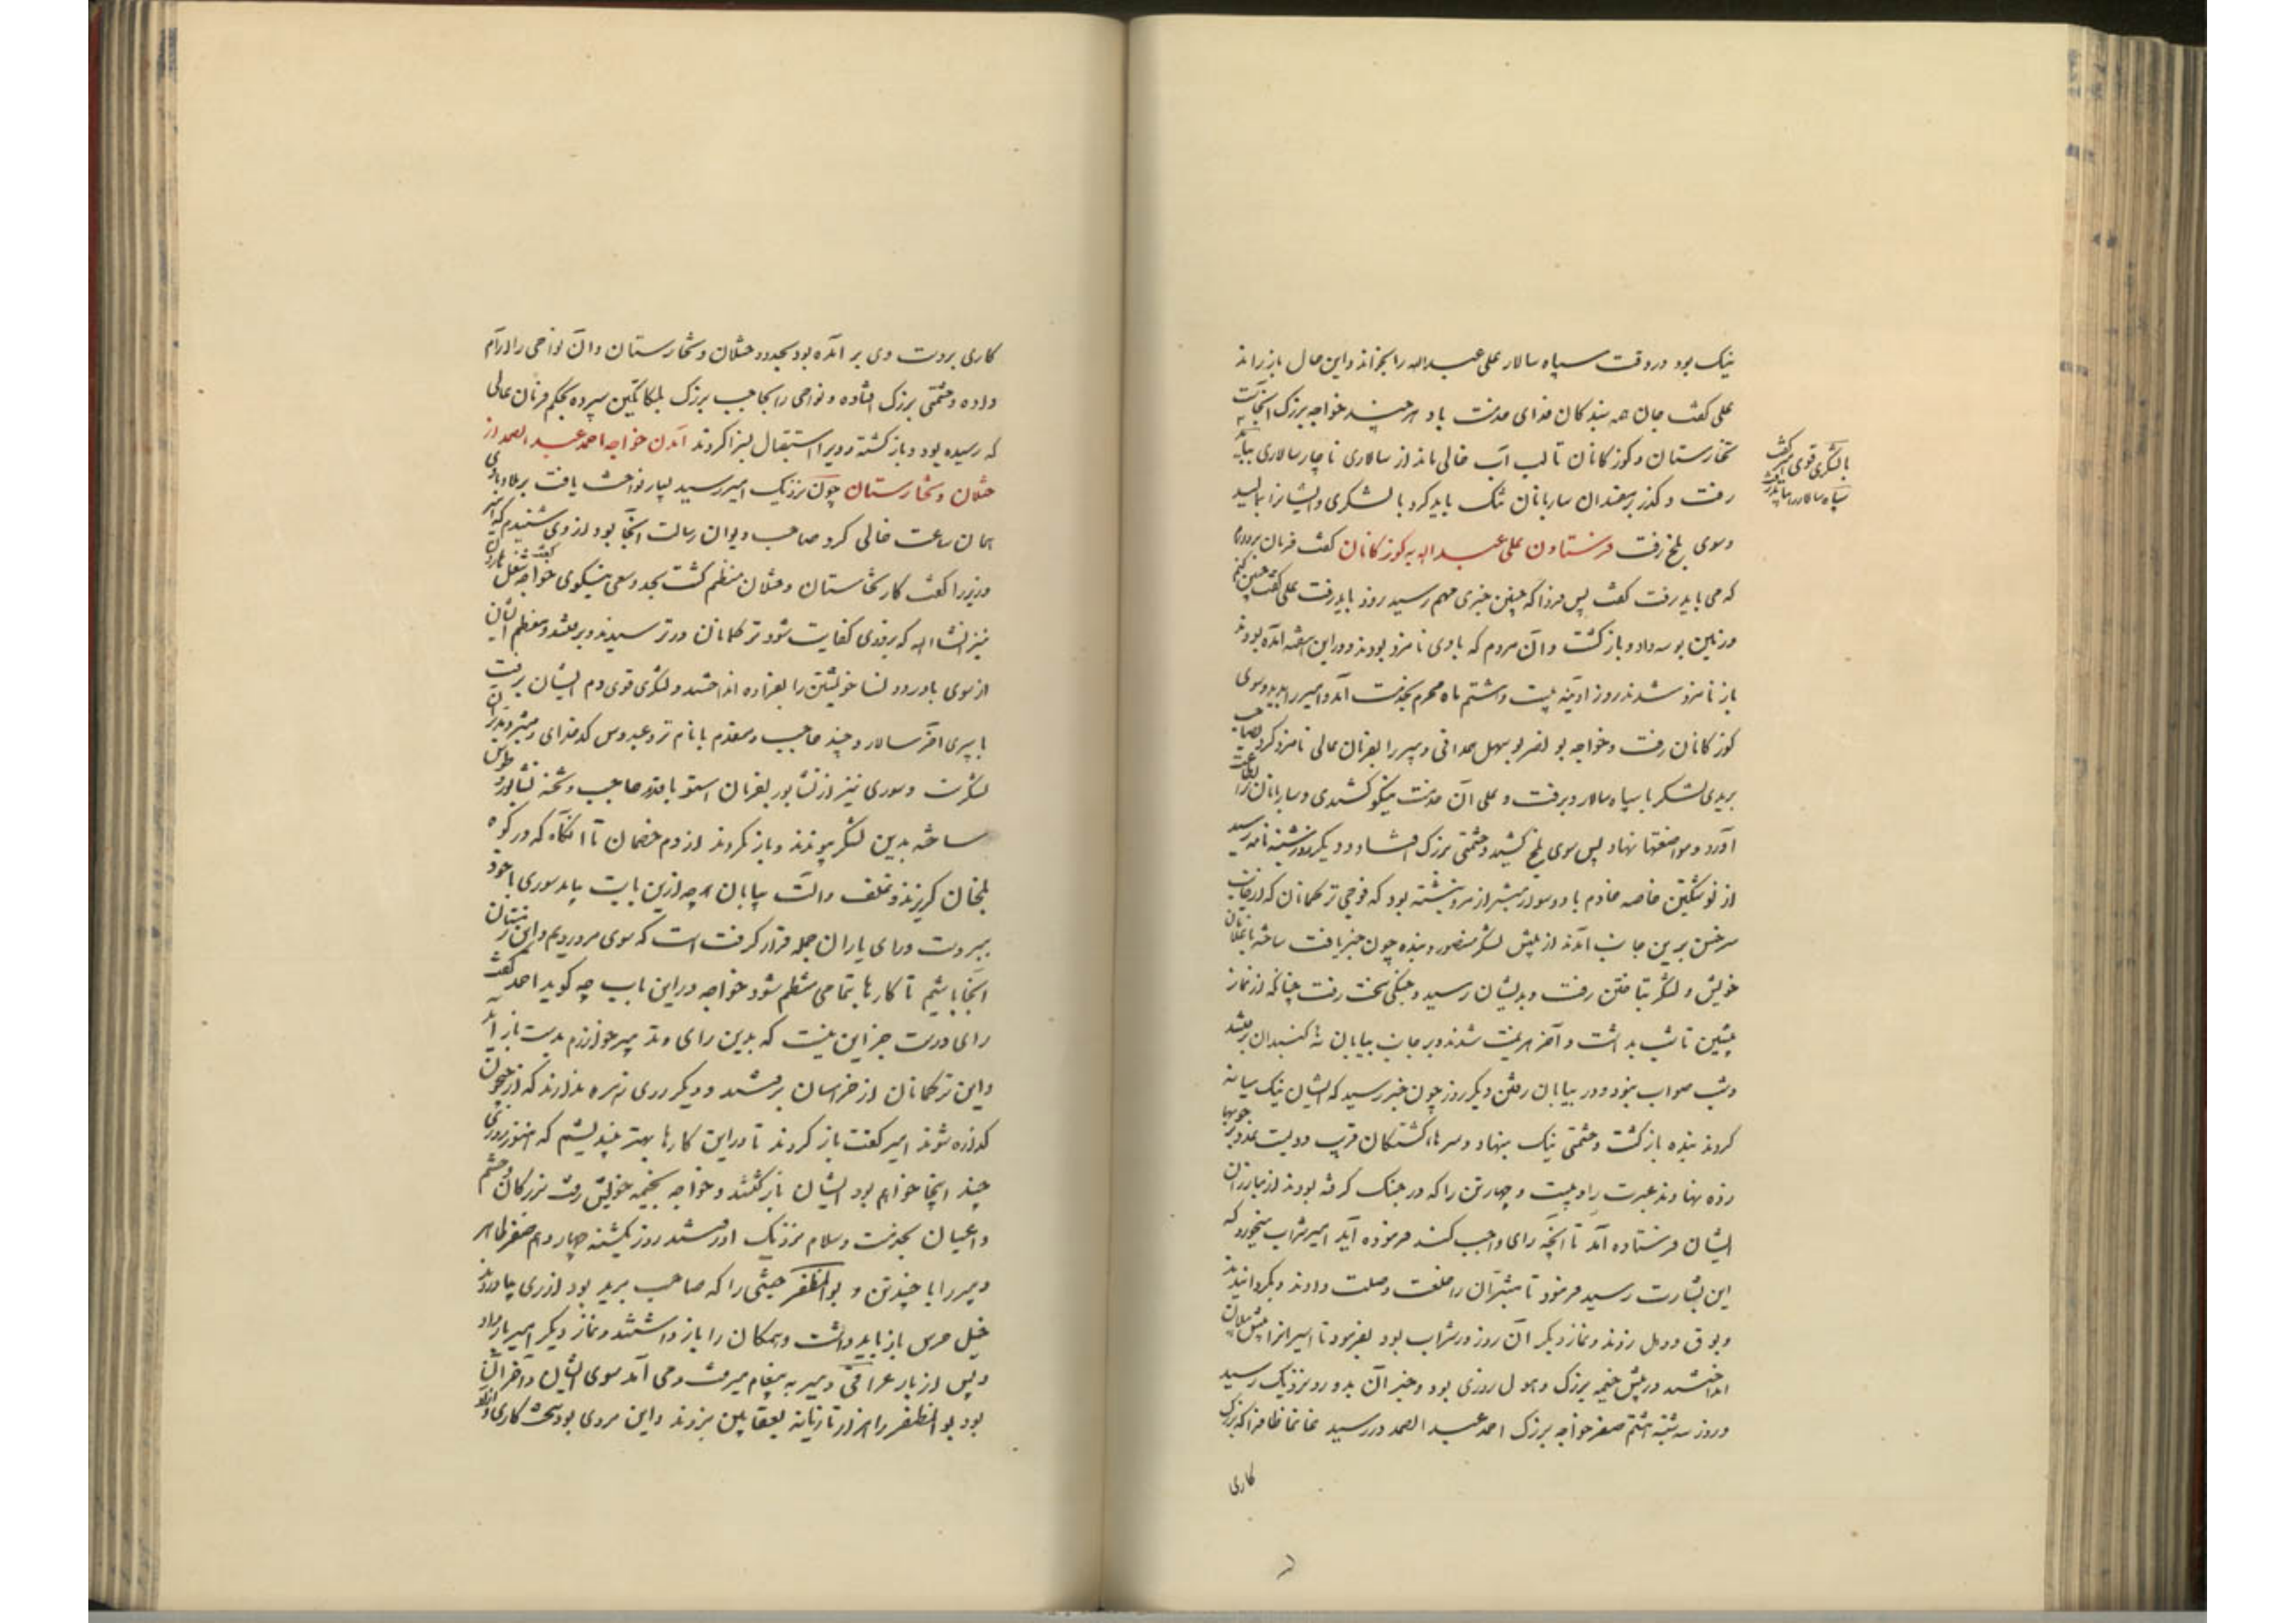 نیک بود در وقت سپاه سالار علی عبدالله را بخواند و این حال باز راند
علی گفت جان همه بندکان فدای خدمت باد هر چند خواجه بزرک انجاست به
تخارستان و کوزکانان تا لب آب خالی ماند از سالاری ناچار سالاری بباید
رفت و کذر بر سعندان ساربانان تنک باید کرد با لشکری و ایشانرا بمالید
وسوی بلخ رفت فرستادن علی عبدالله به کوزکانان گفت فرمان بردارم
که می باید رفت گفت پس فردا که چنین خبری مهم رسید زود باید رفت علی گفت چنین کنم
و زمین بوسه داد و بازکشت و آن مردم که با وی نامزد بودند و در این هفته آمده بودند
باز نامزد شدند روز ادینه بیست و هشتم ماه محرم بخدمت آمد و امیر را بدید و سوی
کوزکانان رفت و خواجه بو نصر بو سهل همدانی دبیر را بفرمان عالی نامزد کرد بصاحب
بریدی لشکر با سپاه سالار و برفت و علی آن خدمت نیکو کشیدی و ساربانان را بطاعت
آورد و مواضعتها نهاد پس سوی بلخ کشید و حشمتی بزرک افتاد و دیکر روز شنبه نامه رسید
از نوشتکین خاصه خادم با دو سوار مبشر از مرو نبشته بود که فوجی ترکمانان که از جانب
سرخس برین جانب آمدند از پیش لشکر منصور و بنده چون خبر یافت ساخته با غلامان
خویش و لشکر بتاختن رفت و بدیشان رسید و جنکی سخت رفت چنانکه از نماز
پیشین تا شب بداشت و آخر هزیمت شدند و بر جانب بیابان ده کنبدان برفتند
و شب صواب نبود و در بیابان رفتن دیکر روز چون خبر رسید که ایشان نیک میانه
کردند بنده بازکشت و حشمتی نیک بنهاد و سرهای کشتکان قریب دویست عدد بر چوبها
زده نهادند عبرت را و بیست و چهار تن را که در جنک کرفته بودند از مبارزان
ایشان فرستاده آمد تا آنچه رای واجب کند فرموده آید امیر شراب میخورد که
این بشارت رسید فرمود تا مبشران را خلعت و صلت دادند و بکردانیدند
و بوق و دهل زدند و نماز دیکر آن روز در شراب بود بفرمود تا اسیرانرا پیش پیلان
انداختند در پیش خیمه بزرک و هول روزی بود و خبر آن بدور و نزدیک رسید
و روز سه شنبه هشتم صفر خواجه بزرک احمد عبدالصمد دررسید غانما ظافرا که بزرک
کاری
با لشکری قوی امیر گفت
سپاه سالار را بباید رفت
کاری بر دست وی بر آمده بود بحدود ختلان و تخارستان و آن نواحی را آرام
داده و حشمتی بزرک افتاده و نواحی را بحاجب بزرک بلکاتکین سپرده بحکم فرمان عالی
که رسیده بود و باز کشته و ویرا استقبال بسزا کردند آمدن خواجه احمد عبدالصمد از
ختلان و تخارستان چون نزدیک امیر رسید بسیار نواخت یافت بر ملا و با وی
همان ساعت خالی کرد صاحب دیوان رسالت آنجا بود از وی شنیدم که امیر
وزیر را کفت کار تخارستان و ختلان منظم کشت بجد و سعی نیکوی خواجه گفت شغل ما درین
نیز انشاالله که بزودی کفایت شود ترکمانان در ترسیدند و برفتند و معظم ایشان
از سوی باورد و نسا خویشتن را بفراوه انداختند و لشکری قوی دم ایشان برفت
با پیری آخر سالار و چند حاجب و مقدم با نام تر و عبدوس کدخدای و مشیر و مدبر آن
لشکرست و سوری نیز از نشابور بفرمان استو با قدر حاجب و شحنه نشابور و طوس
ساخته بدین لشکر پیوندند و باز نکردند از دم خصمان تا آنکاه که در کوه
بلخان کریزند و علف و آلت بیابان هر چه ازین بابت بباید سوری با خود
ببردست و رای یاران جمله قرار کرفت است که سوی مرو رویم و این زمستان
آنجا باشیم تا کارها بتمامی منظم شود خواجه در این باب چه کوید احمد کفت
رای درست جز این نیست که بدین رای و تدبیر خوارزم بدست باز آید
و این ترکمانان از خراسان برفتند و دیکر روی زهره ندارند که از جیحون
کذاره شوند امیر کفت باز کردند تا در این کارها بهتر بیندیشم که هنوز روزی
چند اینجا خواهم بود ایشان بازکشتند و خواجه بخیمه خویش رفت بزرکان و حشم
و اعیان بخدمت و سلام نزدیک او رفتند روز یکشنبه چهاردهم صفر طاهر
دبیر را با چند تن و بوالمظفر حبشی را که صاحب برید بود از ری بیاوردند
خیل حرس باز باید داشت و همکان را باز داشتند و نماز دیکر امیر بار داد
و پس از بار عراقی دبیر به پیغام میرفت و می آمد سوی ایشان و آخر آن
بود بوالمظفر را هزار تازیانه بعقابین بزدند و این مردی بود سخت کاری و آزاد